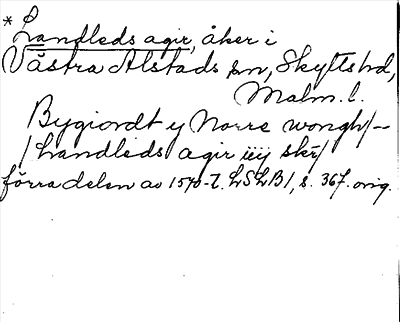 * Landleds agir, åker i
Västra Alstads sn, Skytts hd,
Malm. l.
Bygiordt y Norre wongh/--
/Landleds agir iiij skr/
förra delen av 1570-t. LSLB1, s. 367. orig.